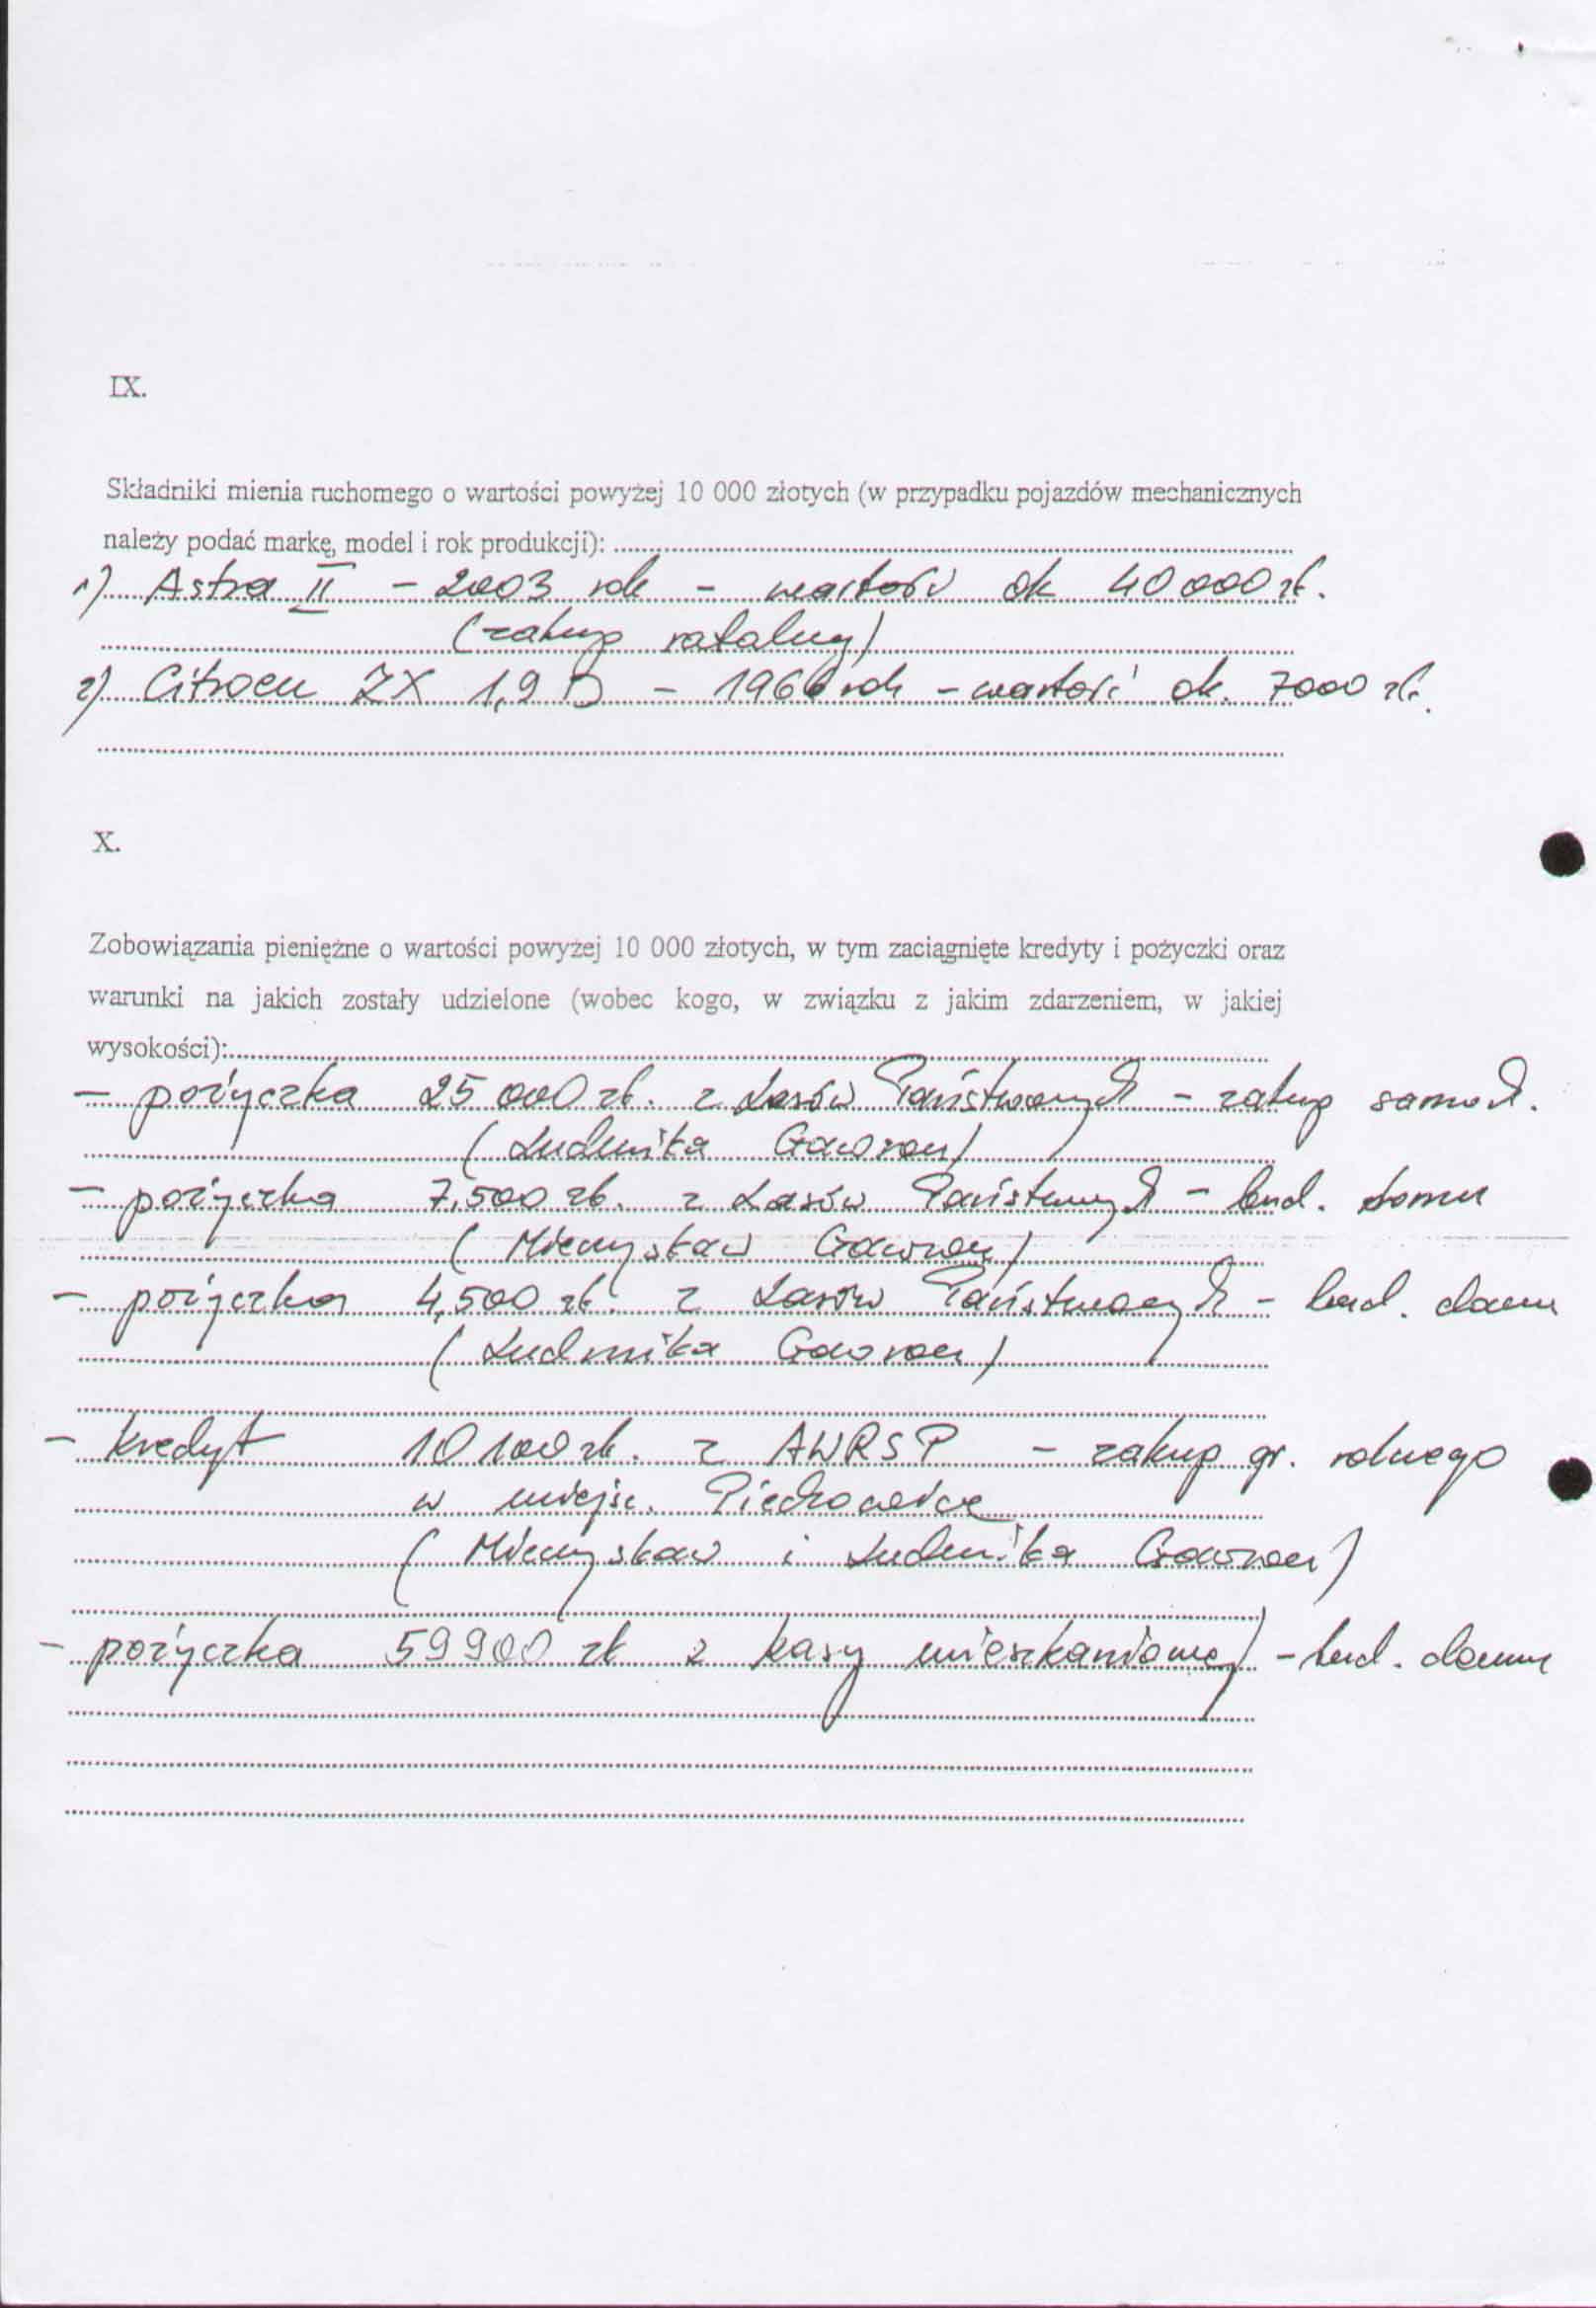 IX.
Składniki mienia ruchomego o wartości powyżej 10 000 złotych (w przypadku pojazdów mechanicznych
należy podać markę, model i rok produkcji):
1) Astra II - 2003 rok - wartość ok 40 000 zł.
(zakup ratalny)
2) Citroen ZX 1,9 D - 1966 rok - wartość ok. 7000 zł.
X.
Zobowiązania pieniężne o wartości powyżej 10 000 złotych, w tym zaciągnięte kredyty i pożyczki oraz
warunki na jakich zostały udzielone (wobec kogo, w związku z jakim zdarzeniem, w jakiej
wysokości):
- pożyczka 25 000 zł. z Lasów Państwowych - zakup samoch.
(Ludmiła Gawron)
- pożyczka 7,500 zł. z Lasów Państwowych - bud. domu
(Mieczysław Gawron)
- pożyczka 4,500 zł. z Lasów Państwowych - bud. domu
(Ludmiła Gawron)
- kredyt 10 100 zł. z AWRSP - zakup gr. rolnego
w miejsc. Piechowice
(Mieczysław i Ludmiła Gawron)
- pożyczka 59900 zł z kasy mieszkaniowej - bud. domu